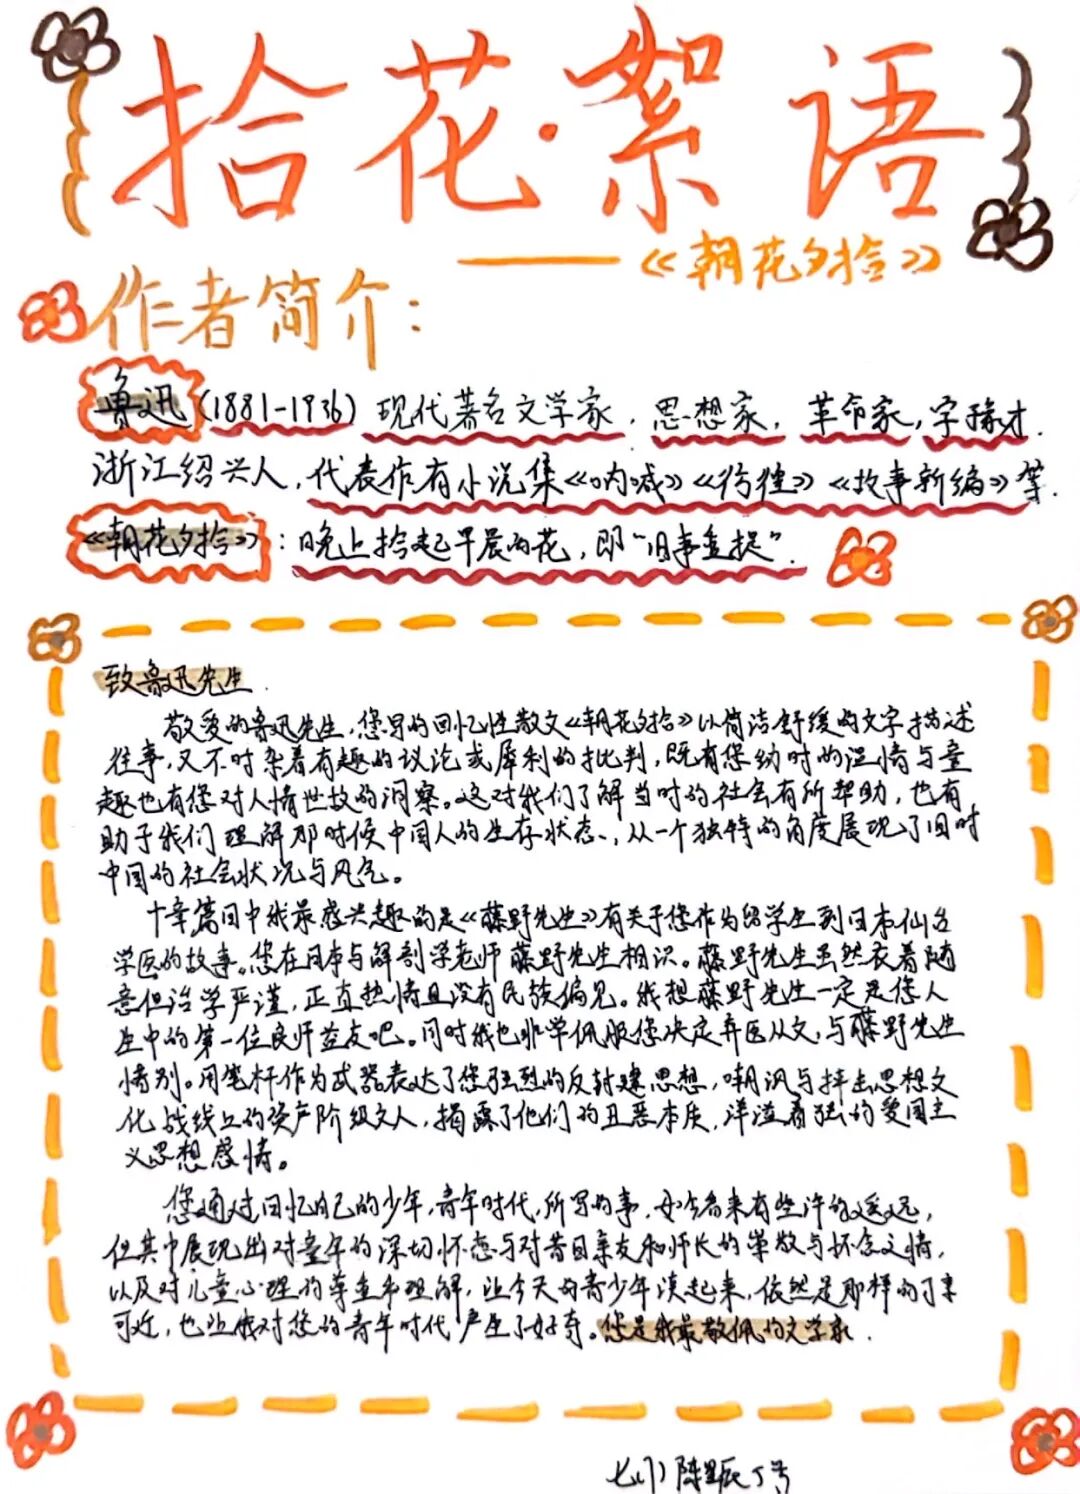 拾花·絮语
——《朝花夕拾》
作者简介：
鲁迅(1881-1936)现代著名文学家,思想家,革命家,字豫才.
浙江绍兴人,代表作有小说集《呐喊》《彷徨》《故事新编》等.
《朝花夕拾》:晚上拾起早晨的花,即“旧事重提”.
致鲁迅先生.
敬爱的鲁迅先生,您写的回忆性散文《朝花夕拾》以简洁舒缓的文字描述
往事,又不时杂着有趣的议论或犀利的批判,既有您幼时的温情与童
趣也有您对人情世故的洞察。这对我们了解当时的社会有所帮助,也有
助于我们理解那时候中国人的生存状态、,从一个独特的角度展现了旧时
中国的社会状况与风气。
十章篇目中我最感兴趣的是《藤野先生》有关于您作为留学生到日本仙台
学医的故事。您在日本与解剖学老师藤野先生相识。藤野先生虽然衣着随
意但治学严谨,正直热情且没有民族偏见。我想藤野先生一定是您人
生中的第一位良师益友吧。同时我也非常佩服您决定弃医从文,与藤野先生
惜别。用笔杆作为武器表达了您强烈的反封建思想,嘲讽与抨击思想文
化战线上的资产阶级文人,揭露了他们的丑恶本质,洋溢着强的爱国主
义思想感情。
您通过回忆自己的少年,青年时代,所写的事,如今看来有些许的遥远,
但其中展现出对童年的深切怀恋与对昔日亲友和师长的崇敬与怀念之情,
以及对儿童心理的尊重和理解,让今天的青少年读起来,依然是那样的可亲
可近,也让我对您的青年时代产生了好奇。您是我最敬佩的文学家.
七(1)陈 5号